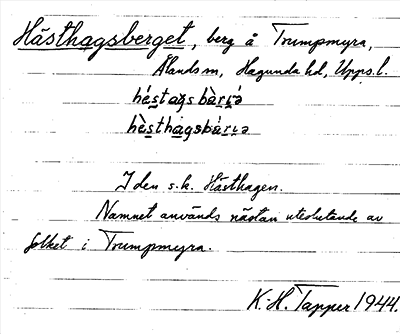 Hästhagsberget, berg å Trumpmyra,
Ålands sn, Hagunda hd, Upps. l.
hǽstags bær̀ɩ̯ə
hæ̀sthagsbær̀ɩ̯ə
I den s.k. Hästhagen.
Namnet används nästan uteslutande av
folket i Trumpmyra.
K.-H. Tapper 1944.